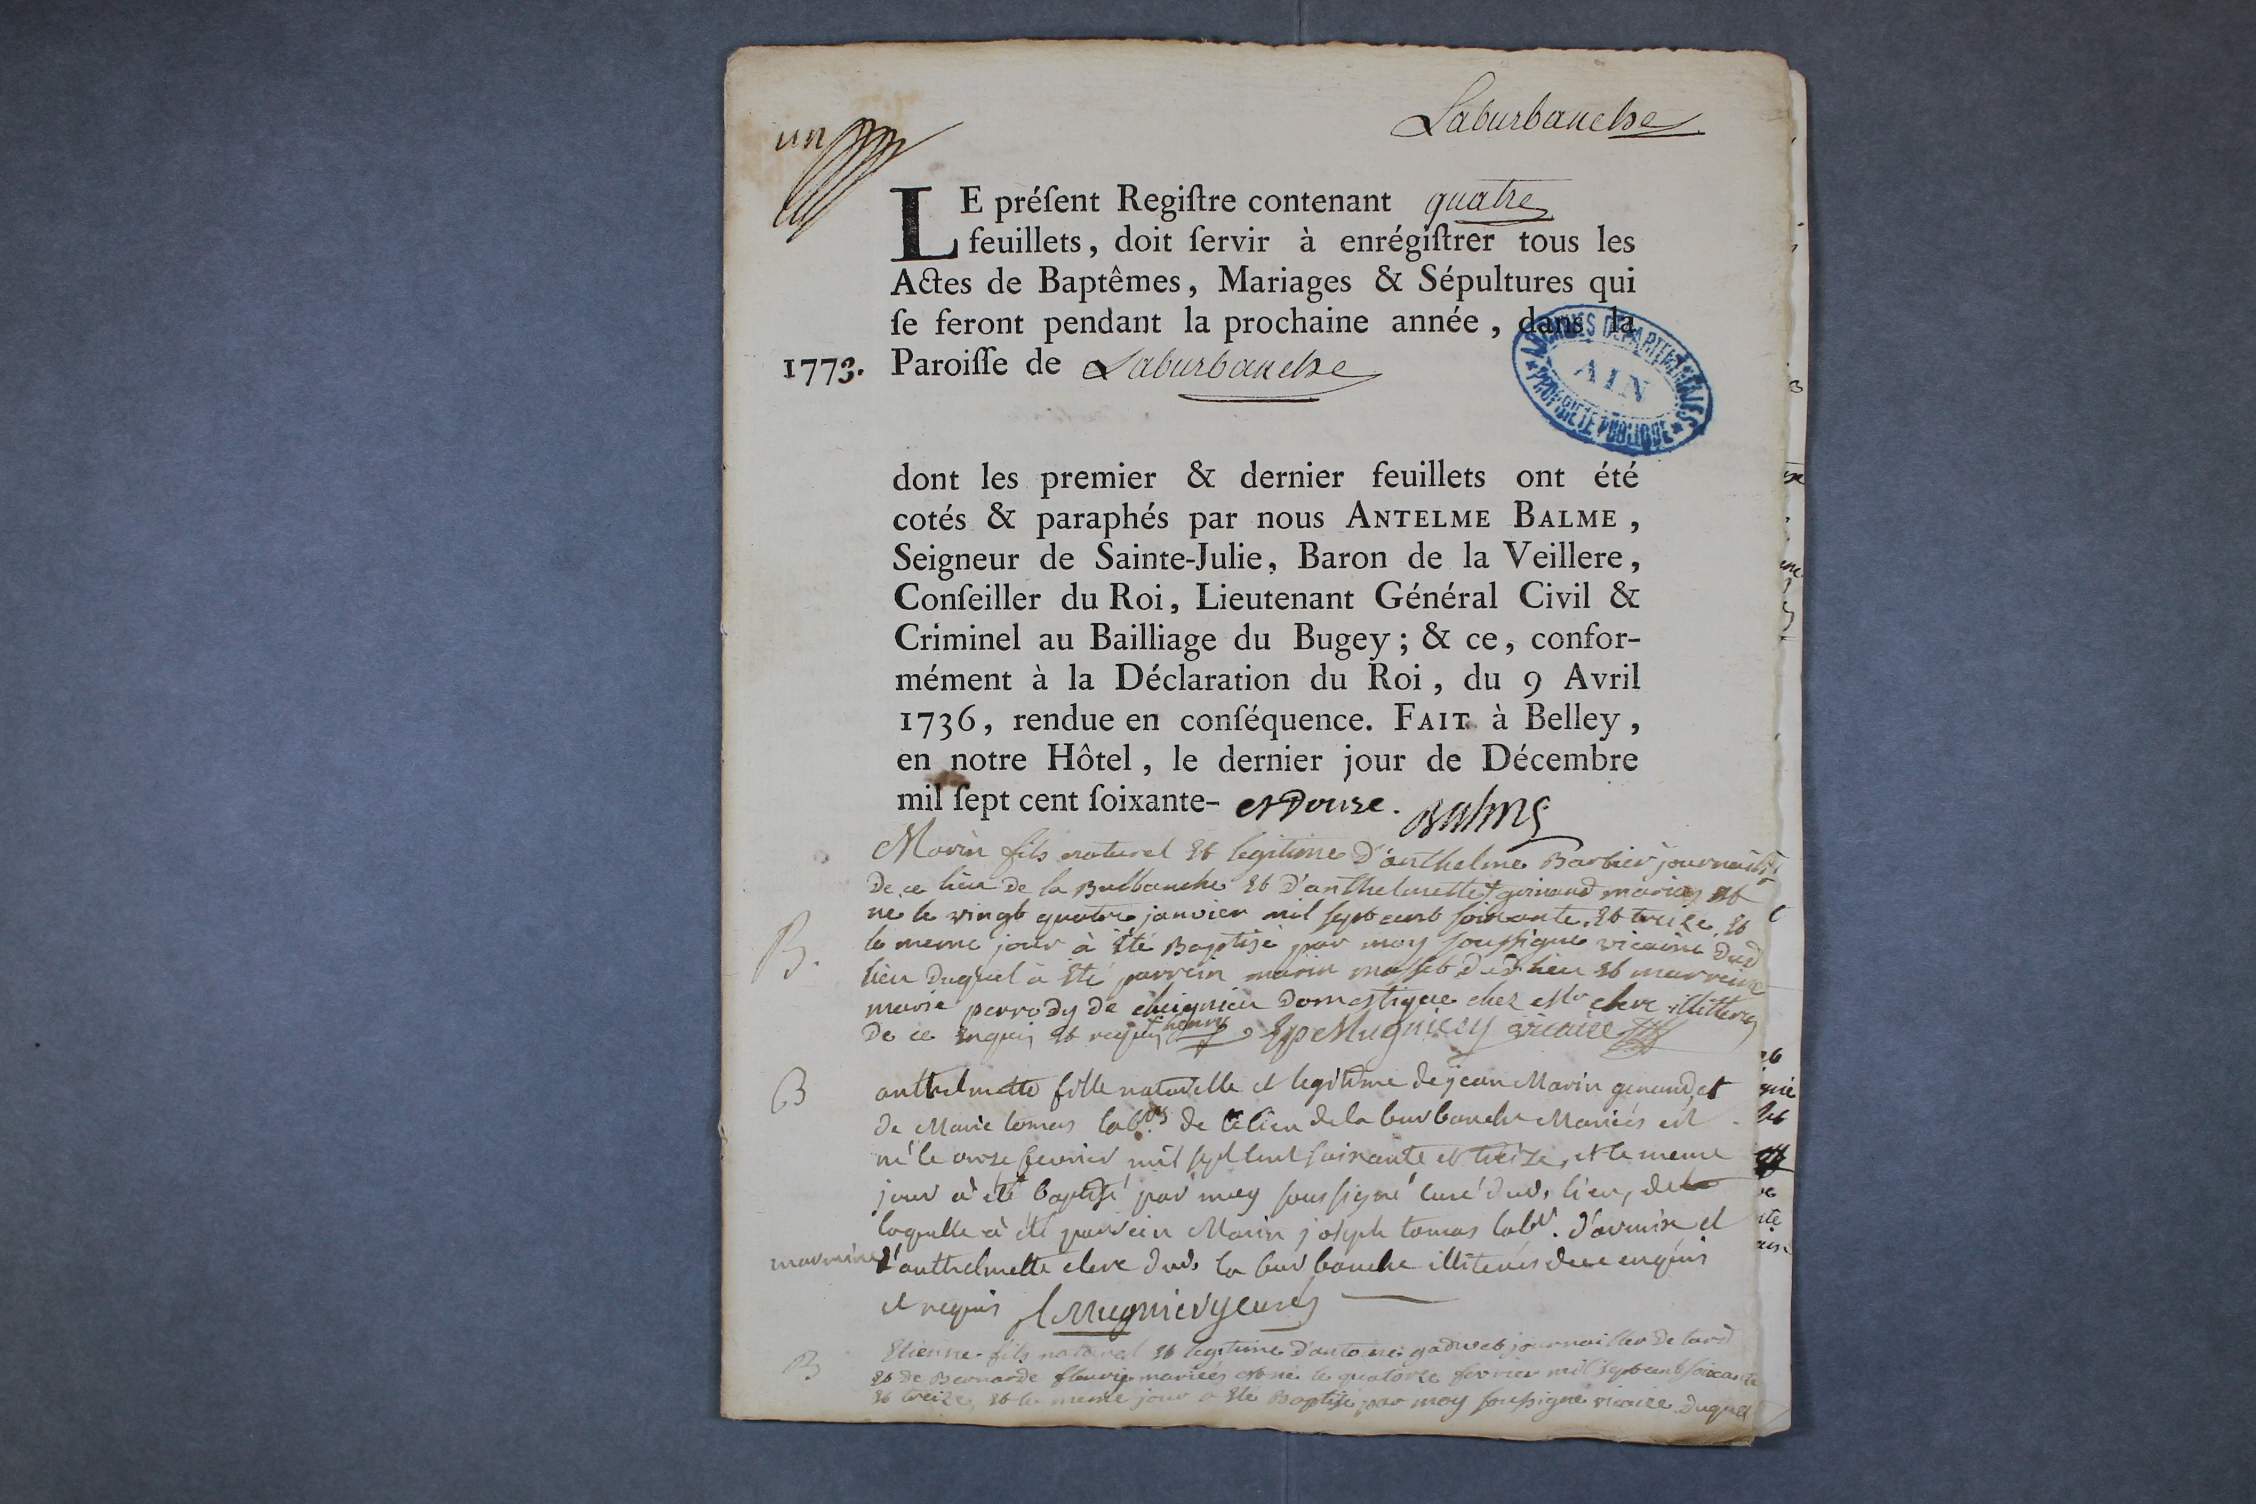 un
Laburbanche
LE préſent Regiſtre contenant quatre
feuillets, doit ſervir à enrégiſtrer tous les
Actes de Baptêmes, Mariages & Sépultures qui
ſe feront pendant la prochaine année, dans la
1773. Paroiſſe de Laburbanche
ARCHIVES DEPARTEMENTALES
AIN
PROPRIETE PUBLIQUE
dont les premier & dernier feuillets ont été
cotés & paraphés par nous ANTELME BALME,
Seigneur de Sainte-Julie, Baron de la Veillere,
Conſeiller du Roi, Lieutenant Général Civil &
Criminel au Bailliage du Bugey; & ce, confor-
mément à la Déclaration du Roi, du 9 Avril
1736, rendue en conſéquence. FAIT à Belley,
en notre Hôtel, le dernier jour de Décembre
mil ſept cent ſoixante- et Douze. Balme
Marin fils naturel et legitime d'anthelme Barbier journailler
de ce lieu de la Burbanche et d'anthelmette mariés est
né le vingt quatre janvier mil sept cent soixante et treize et
B. le meme jour à été Baptisé par moy soussigné vicaire dud
lieu duquel à été parrein marin dud lieu et marreine
marie perrody de cheignieu domestique chez clerc illitterés
de ce enquis et requis Mugniery vicaire
B anthelmette fille naturelle et legitime de jean Marin genaud, et
de Marie tomas labrs de ce lieu de la burbanche Mariés est
né le onze fevrier mil sept cent soixante et treize, et le meme
jour à été baptisé par moy soussigné curé dud. lieu, de
laquelle à été parrein Marin joseph tomas labr. d'armix et
marraine anthelmette clerc dud. la burbanche illiterés de ce enquis
et requis Mugniery curé
B Etienne fils naturel et legitime d'antoine journailler
et de Bernarde fleurie mariés est né le quatorze fevrier mil sept cent soixante
et treize, et le meme jour a été Baptisé par moy soussigné vicaire duquel